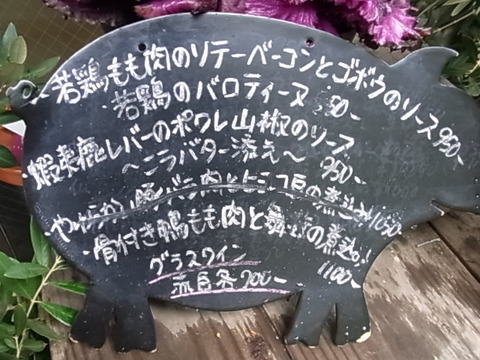 若鶏もも肉のソテーベーコンとゴボウのソース950-
若鶏のバロティーヌ 350-
蝦夷鹿レバーのポワレ山椒のソース
〜ニラバター添え〜 950-
やわらか豚バラ肉と の煮込み1050-
骨付き鴨もも肉と舞茸の煮込み
1100-
グラスワイン
赤白各700-